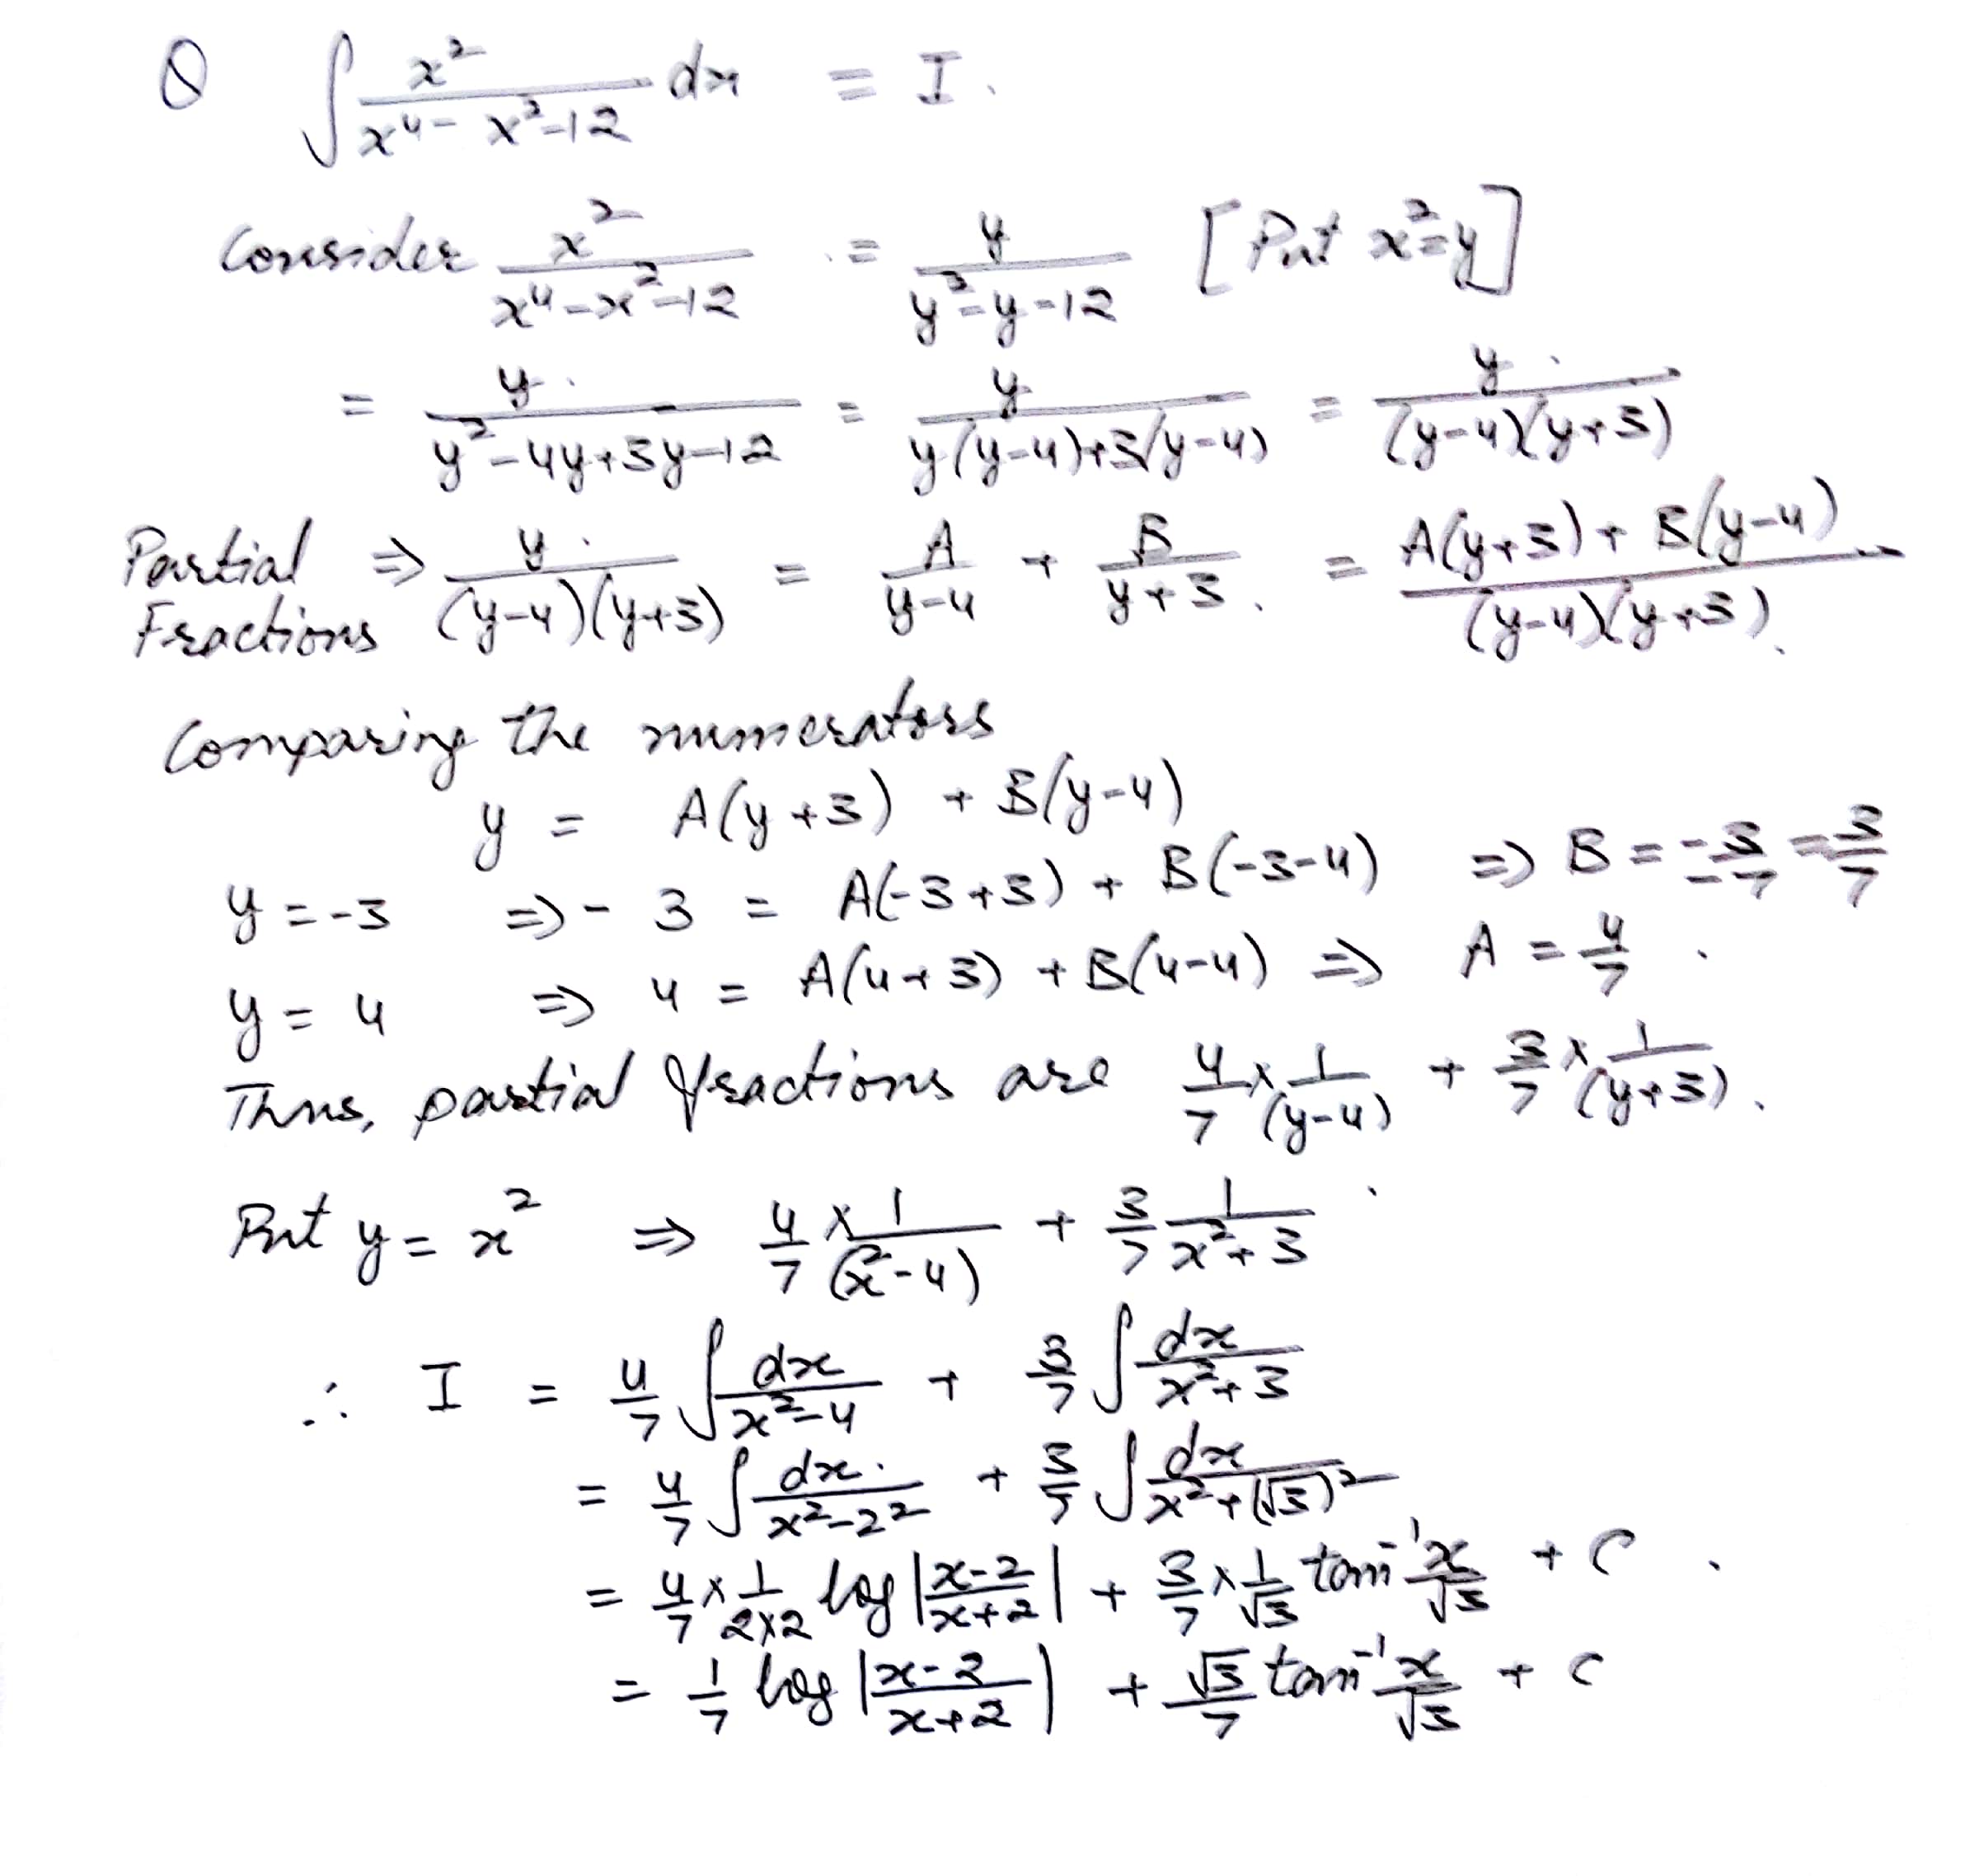 Q ∫ x²/(x⁴ - x² - 12) dx = I.
Consider x²/(x⁴ - x² - 12) = y/(y² - y - 12) [Put x² = y]
= y/(y² - 4y + 3y - 12) = y/(y(y-4)+3(y-4)) = y/((y-4)(y+3))
Partial Fractions ⇒ y/((y-4)(y+3)) = A/(y-4) + B/(y+3) = (A(y+3) + B(y-4))/((y-4)(y+3)).
Comparing the numerators
y = A(y+3) + B(y-4)
y = -3 ⇒ -3 = A(-3+3) + B(-3-4) ⇒ B = -3/-7 = 3/7
y = 4 ⇒ 4 = A(4+3) + B(4-4) ⇒ A = 4/7.
Thus, partial fractions are 4/7 × 1/(y-4) + 3/7 × 1/(y+3).
Put y = x² ⇒ 4/7 × 1/(x²-4) + 3/7 1/(x²+3)
∴ I = 4/7 ∫ dx/(x²-4) + 3/7 ∫ dx/(x²+3)
= 4/7 ∫ dx/(x²-2²) + 3/7 ∫ dx/(x²+(√3)²)
= 4/7 × 1/(2×2) log |(x-2)/(x+2)| + 3/7 × 1/√3 tan⁻¹ x/√3 + C.
= 1/7 log |(x-2)/(x+2)| + √3/7 tan⁻¹ x/√3 + C